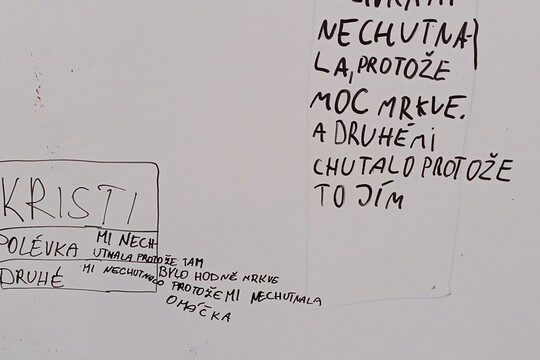 NECHUTNA
LA, PROTOŽE
MOC MRKVE.
A DRUHÉ MI
CHUTALO PROTOŽE
TO JÍM
KRISTI
POLÉVKA MI NECH-
UTNALA PROTOŽE TAM
BYLO HODNĚ MRKVE
DRUHÉ MI NECHUTNALO
PROTOŽE MI NECHUTNALA
OMÁČKA